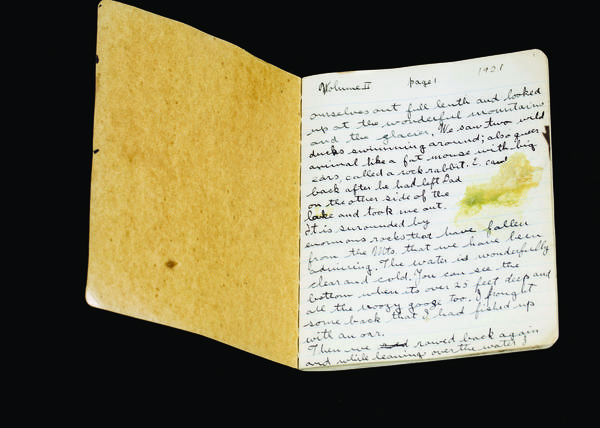 Volume II page 1 1921
ourselves out full lenth and looked
up at the wonderful mountains
and the glacier. We saw two wild
ducks swimming around; also queer
animal like a fat mouse with big
ears, called a rock rabbit. E. came
back after he had left Dad
on the other side of the
lake and took me out.
It is surounded by
enormous rocks that have fallen
from the Mts. that we have been
admiring. The water is wonderfully
clear and cold. You can see the
bottom when its over 25 feet deep and
all the woozy gooze too. I brought
some back that I had fished up
with an oar.
Then we rowed back again
and while leaning over the water